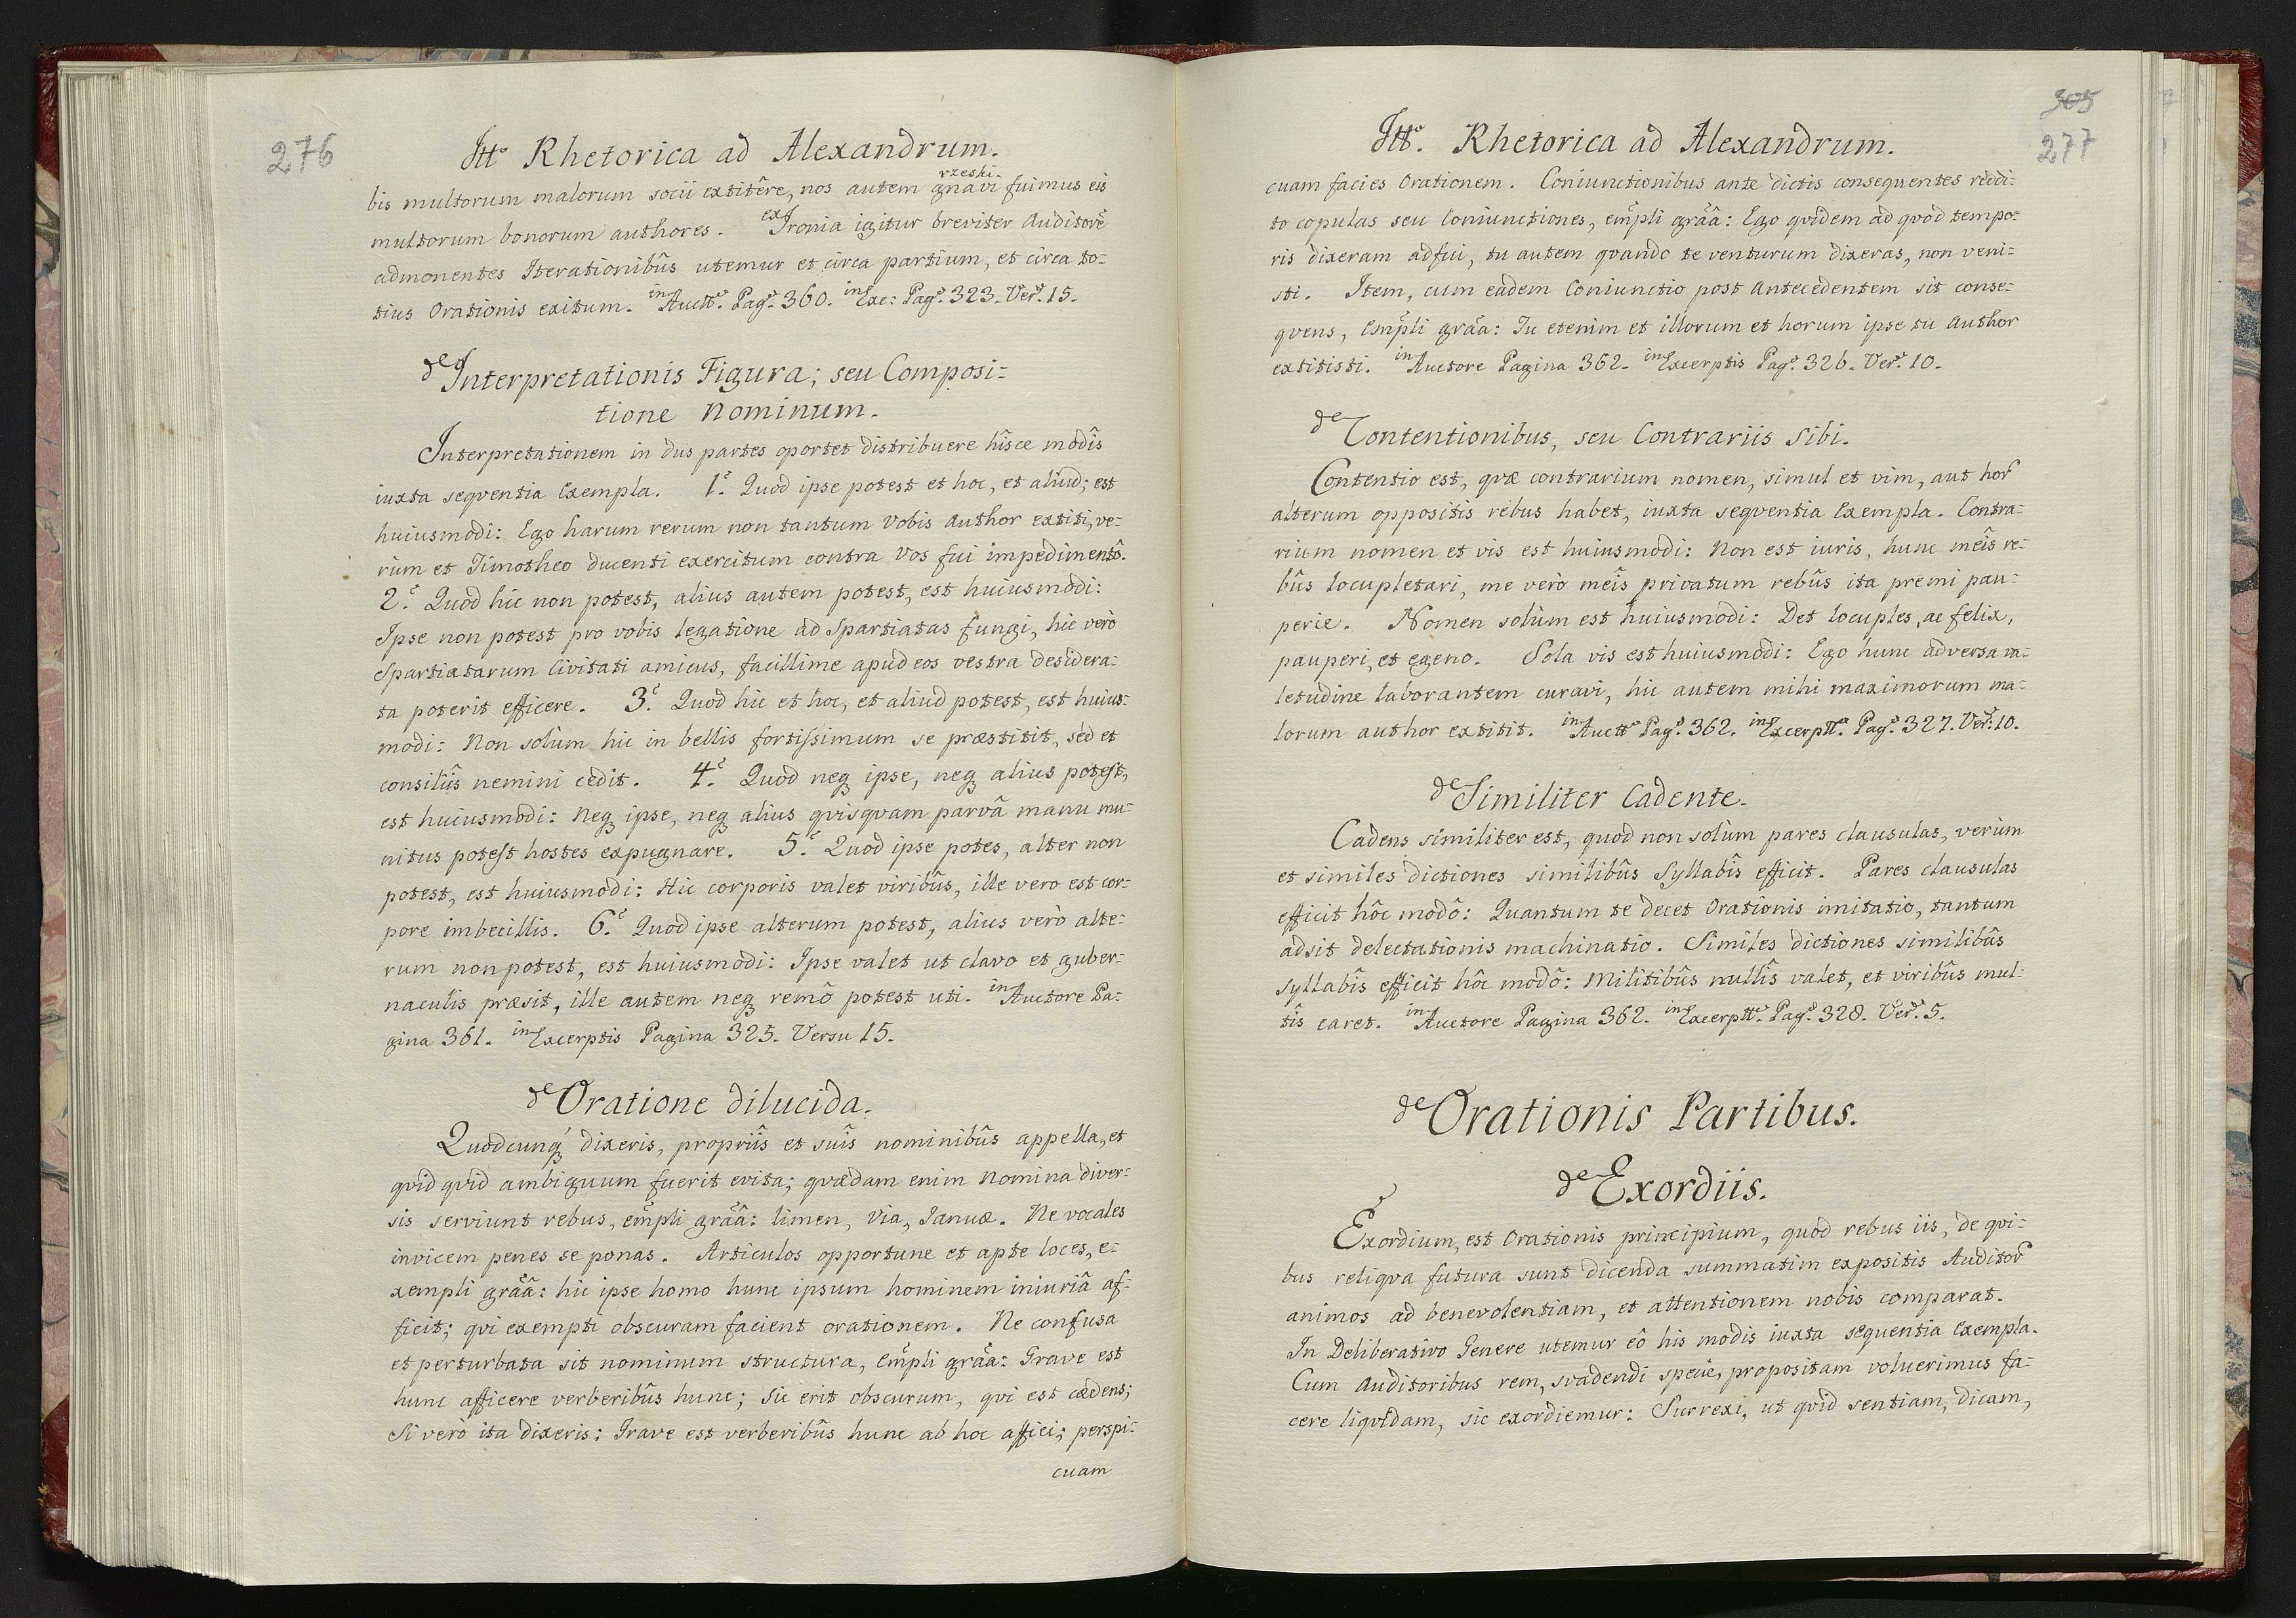 276
Itt° Rhetorica ad Alexandrum.
rzeski.
bis multorum malorum socii extitêre, nos autem gnavi fuimus eis
multorum bonorum authores. ex Ironia igitur breviter Auditorẽ
admonentes Iterationibûs utemur et circa partium, et circa to=
tius Orationis exitum. in Auctt°. Pag°. 360. in Exc: Pag°. 323. Ver°. 15.
de Interpretationis Figura; seu Composi=
tione Nominum.
Interpretationem in dus partes oportet distribuere hîsce modîs
iuxta seqventia Exempla. 1° Quod ipse potest et hoc, et aliud; est
huiusmodi: Ego harum rerum non tantum Vobis Author extiti, ve=
rùm et Timotheo ducenti exercitum contra Vos fui impedimentô.
2° Quod hic non potest, alius autem potest, est huiusmodi:
Ipse non potest pro vobis legatione ad Spartiatas fungi, hic verò
Spartiatarum Civitati amicus, facillime apud eos vestra desidera=
ta poterit efficere. 3° Quod hic et hoc, et aliud potest, est huius=
modi: Non solùm hic in bellis fortissimum se præstitit, sed et
consiliîs nemini cedit. 4° Quod neq ipse, neq alius potest,
est huiusmodi: Neq ipse, neq alius qvisqvam parvâ manu mu=
nitus potest hostes expugnare. 5° Quod ipse potes, alter non
potest, est huiusmodi: Hic corporis valet viribûs, ille vero est cor=
pore imbecillis. 6° Quod ipse alterum potest, alius verò alte=
rum non potest, est huiusmodi: Ipse valet ut clavo et guber=
naculis præsit, ille autem neq remô potest uti. in Auctore Pa=
gina 361. in Excerptis Pagina 325. Versu 15.
de Oratione dilucida.
Quodcunq dixeris, propriîs et suîs nominibûs appella, et
qvid qvid ambiguum fuerit evita; qvædam enim Nomina diver=
sis serviunt rebus, empli grãâ: limen, Via, Ianuæ. Ne vocales
invicem penes se ponas. Articulos opportune et apte loces, e=
xempli grãâ: hic ipse homo hunc ipsum hominem iniuriâ af=
ficit; qvi exempti obscuram facient orationem. Ne confusa
et perturbata sit nominum structura, Empli grãa: Grave est
hunc afficere verberibûs hunc; Sic erit obscurum, qvi est cædens;
Si verò ita dixeris: Grave est verberibûs hunc ab hoc affici; perspi=
cuam
305
277
Itt°. Rhetorica ad Alexandrum.
cuam facies Orationem. Coniunctionibus ante dictis conseqventes reddi=
to copulas seu Coniunctiones, empli grãâ: Ego qvidem ad qvod tempo=
ris dixeram adfui, tu autem qvando te venturum dixeras, non veni=
sti. Item, cum eadem Coniunctio post Antecedentem sit conse=
qvens, Empli grãa: Tu etenim et illorum et horum ipse tu Author
extitisti. in Auctore Pagina 362. in Excerptis Pag°. 326. Ver°. 10.
de Contentionibus, seu Contrariis Sibi.
Contentio est, qvæ contrarium nomen, simul et vim, aut hor
alterum oppositis rebus habet, iuxta seqventia Exempla. Contra=
rium nomen et vis est huiusmodi: Non est iuris, hunc meîs re=
bûs locupletari, me verò meîs privatum rebûs ita premi pau=
perie. Nomen solùm est huiusmodi: Det locuples, ac felix,
pauperi, et egeno. Sola vis est huiusmodi: Ego hunc adversa va=
letudine laborantem curavi, hic autem mihi maximorum ma=
lorum author extitit. in Auctt° Pag°. 362. in Excerptt°. Pag°. 327. Ver°. 10.
de Similiter Cadente.
Cadens similiter est, quod non solùm pares clausulas, verùm
et similes dictiones similibûs Syllabîs efficit. Pares clausulas
efficit hôc modô: Quantum te decet Orationis imitatio, tantum
adsit delectationis machinatio. Similes dictiones similibûs
syllabîs efficit hôc modô: Militibûs nullîs valet, et viribûs mul=
tîs caret. in Auctore Pagina 362. in Excerptt°. Pag°. 328. Ver°. 5.
de Orationis Partibus.
de Exordiis.
Exordium, est Orationis principium, quod rebus iis, de qvi=
bus reliqva futura sunt dicenda summatim expositis Auditor
animos ad benevolentiam, et attentionem nobis comparat.
In Deliberativo Genere utemur eô his modis iuxta sequentia Exempla.
Cum Auditoribus rem, svadendi specie, propositam voluerimus fa=
cere liqvidam, sic exordiemur: Surrexi, ut qvid sentiam, dicam,